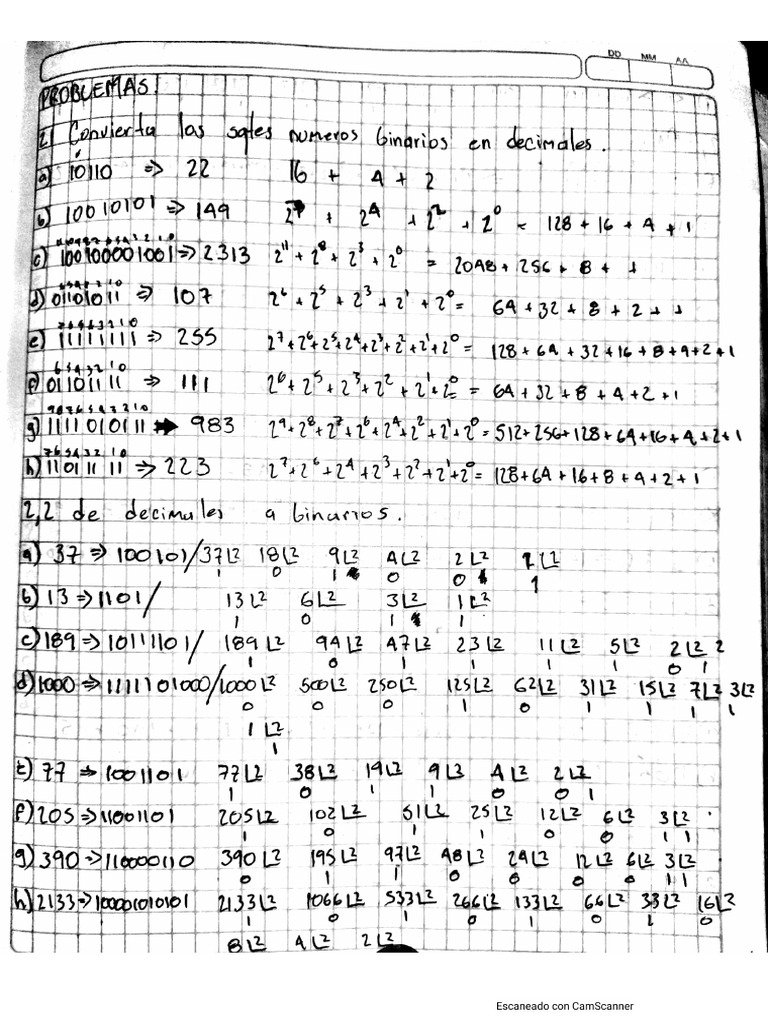 DD MM AA
PROBLEMAS:
2.1 Convierta los sgtes numeros binarios en decimales.
a) 10110 => 22 16 + 4 + 2
b) 10010101 => 149 2^7 + 2^4 + 2^2 + 2^0 = 128 + 16 + 4 + 1
11 10 9 8 7 6 5 4 3 2 1 0
c) 100100001001 => 2313 2^11 + 2^8 + 2^3 + 2^0 = 2048 + 256 + 8 + 1
7 6 5 4 3 2 1 0
d) 01101011 => 107 2^6 + 2^5 + 2^3 + 2^1 + 2^0 = 64 + 32 + 8 + 2 + 1
7 6 5 4 3 2 1 0
e) 11111111 => 255 2^7 + 2^6 + 2^5 + 2^4 + 2^3 + 2^2 + 2^1 + 2^0 = 128 + 64 + 32 + 16 + 8 + 4 + 2 + 1
6 5 4 3 2 1 0
f) 01101111 => 111 2^6 + 2^5 + 2^3 + 2^2 + 2^1 + 2^0 = 64 + 32 + 8 + 4 + 2 + 1
9 8 7 6 5 4 3 2 1 0
g) 1111010111 => 983 2^9 + 2^8 + 2^7 + 2^6 + 2^4 + 2^2 + 2^1 + 2^0 = 512 + 256 + 128 + 64 + 16 + 4 + 2 + 1
7 6 5 4 3 2 1 0
h) 11011111 => 223 2^7 + 2^6 + 2^4 + 2^3 + 2^2 + 2^1 + 2^0 = 128 + 64 + 16 + 8 + 4 + 2 + 1
2,2 de decimales a binarios.
a) 37 => 100101 / 37∟2 18∟2 9∟2 4∟2 2∟2 1∟2
1 0 1 0 0 1
b) 13 => 1101 / 13∟2 6∟2 3∟2 1∟2
1 0 1 1
c) 189 => 10111101 / 189∟2 94∟2 47∟2 23∟2 11∟2 5∟2 2∟2 2
1 0 1 1 1 1 0 1
d) 1000 => 1111101000 / 1000∟2 500∟2 250∟2 125∟2 62∟2 31∟2 15∟2 7∟2 3∟2
0 0 0 1 0 1 1 1 1
1∟2
1
E) 77 => 1001101 77∟2 38∟2 19∟2 9∟2 4∟2 2∟2
1 0 1 1 0 0 1
f) 205 => 11001101 205∟2 102∟2 51∟2 25∟2 12∟2 6∟2 3∟2
1 0 1 1 0 0 1 1
g) 390 => 110000110 390∟2 195∟2 97∟2 48∟2 24∟2 12∟2 6∟2 3∟2
0 1 1 0 0 0 0 1 1
h) 2133 => 100001010101 2133∟2 1066∟2 533∟2 266∟2 133∟2 66∟2 33∟2 16∟2
1 0 1 0 1 0 1 0
8∟2 4∟2 2∟2
Escaneado con CamScanner